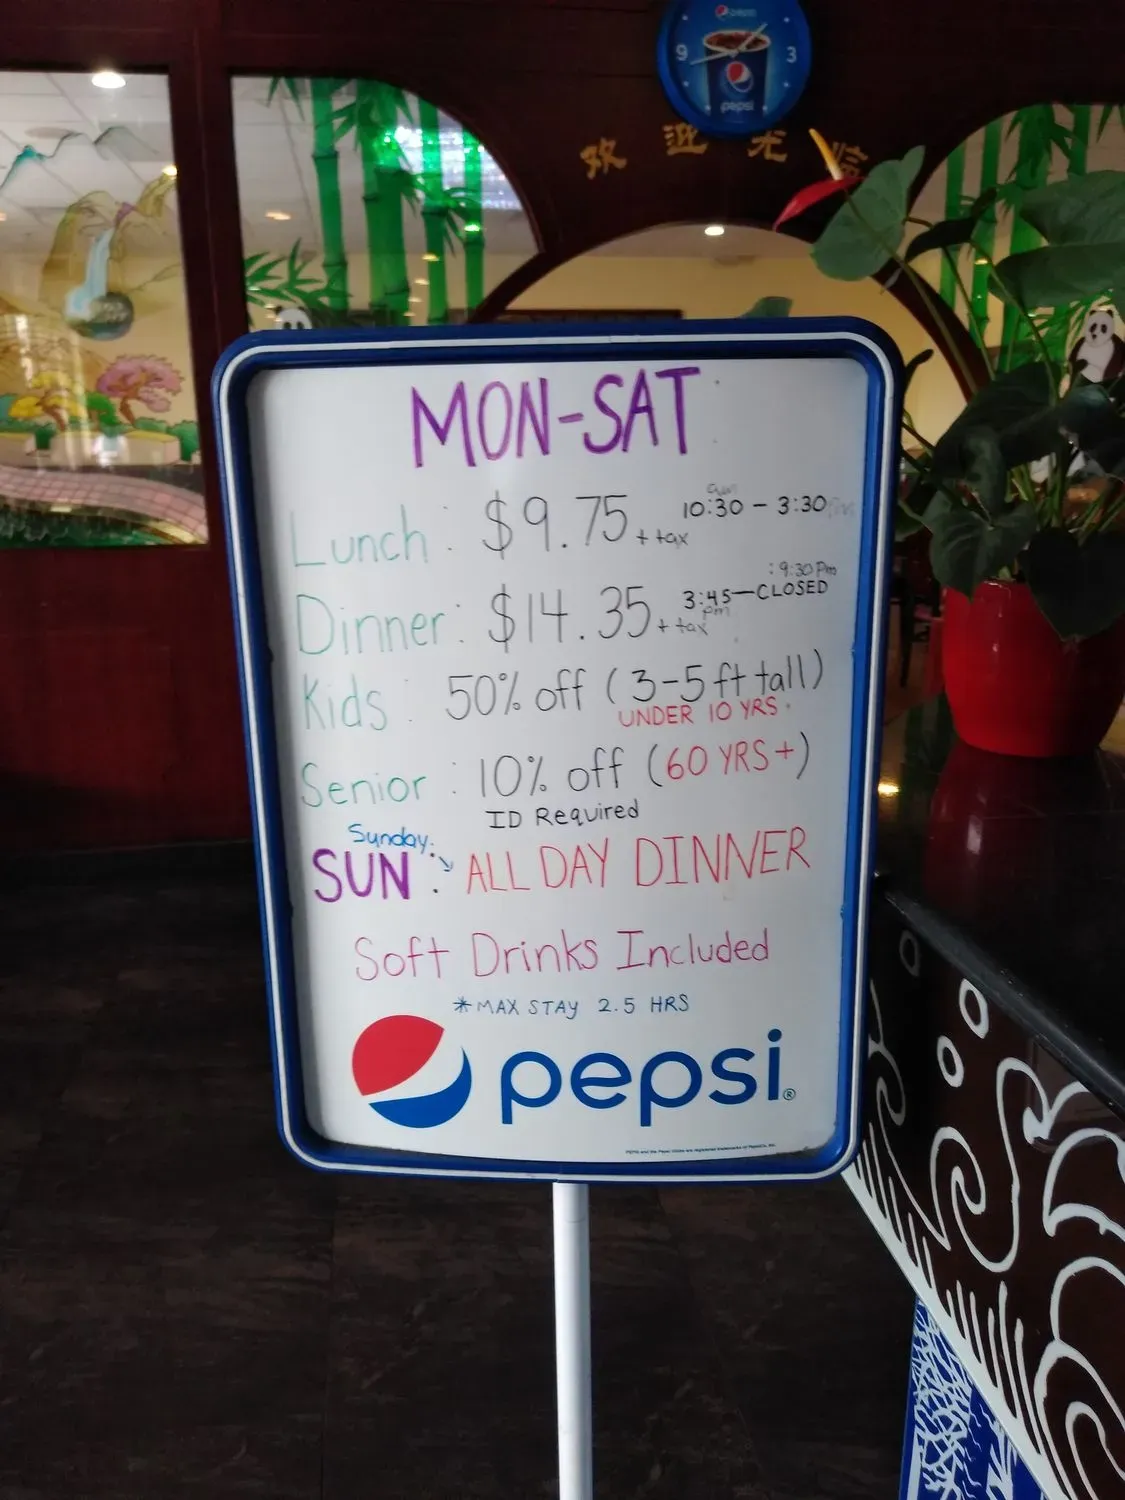 pepsi
9 3
pepsi
欢 迎 光 临
MON-SAT
am
Lunch : $9.75 + tax 10:30 - 3:30 pm
: 9:30 Pm
Dinner : $14.35 + tax 3:45 — CLOSED
pm
Kids : 50% off (3-5 ft tall)
UNDER 10 YRS.
Senior : 10% off (60 YRS+)
ID Required
Sunday:
SUN : ALL DAY DINNER
Soft Drinks Included
*MAX STAY 2.5 HRS
pepsi®
PEPSI and the Pepsi Globe are registered trademarks of PepsiCo, Inc.